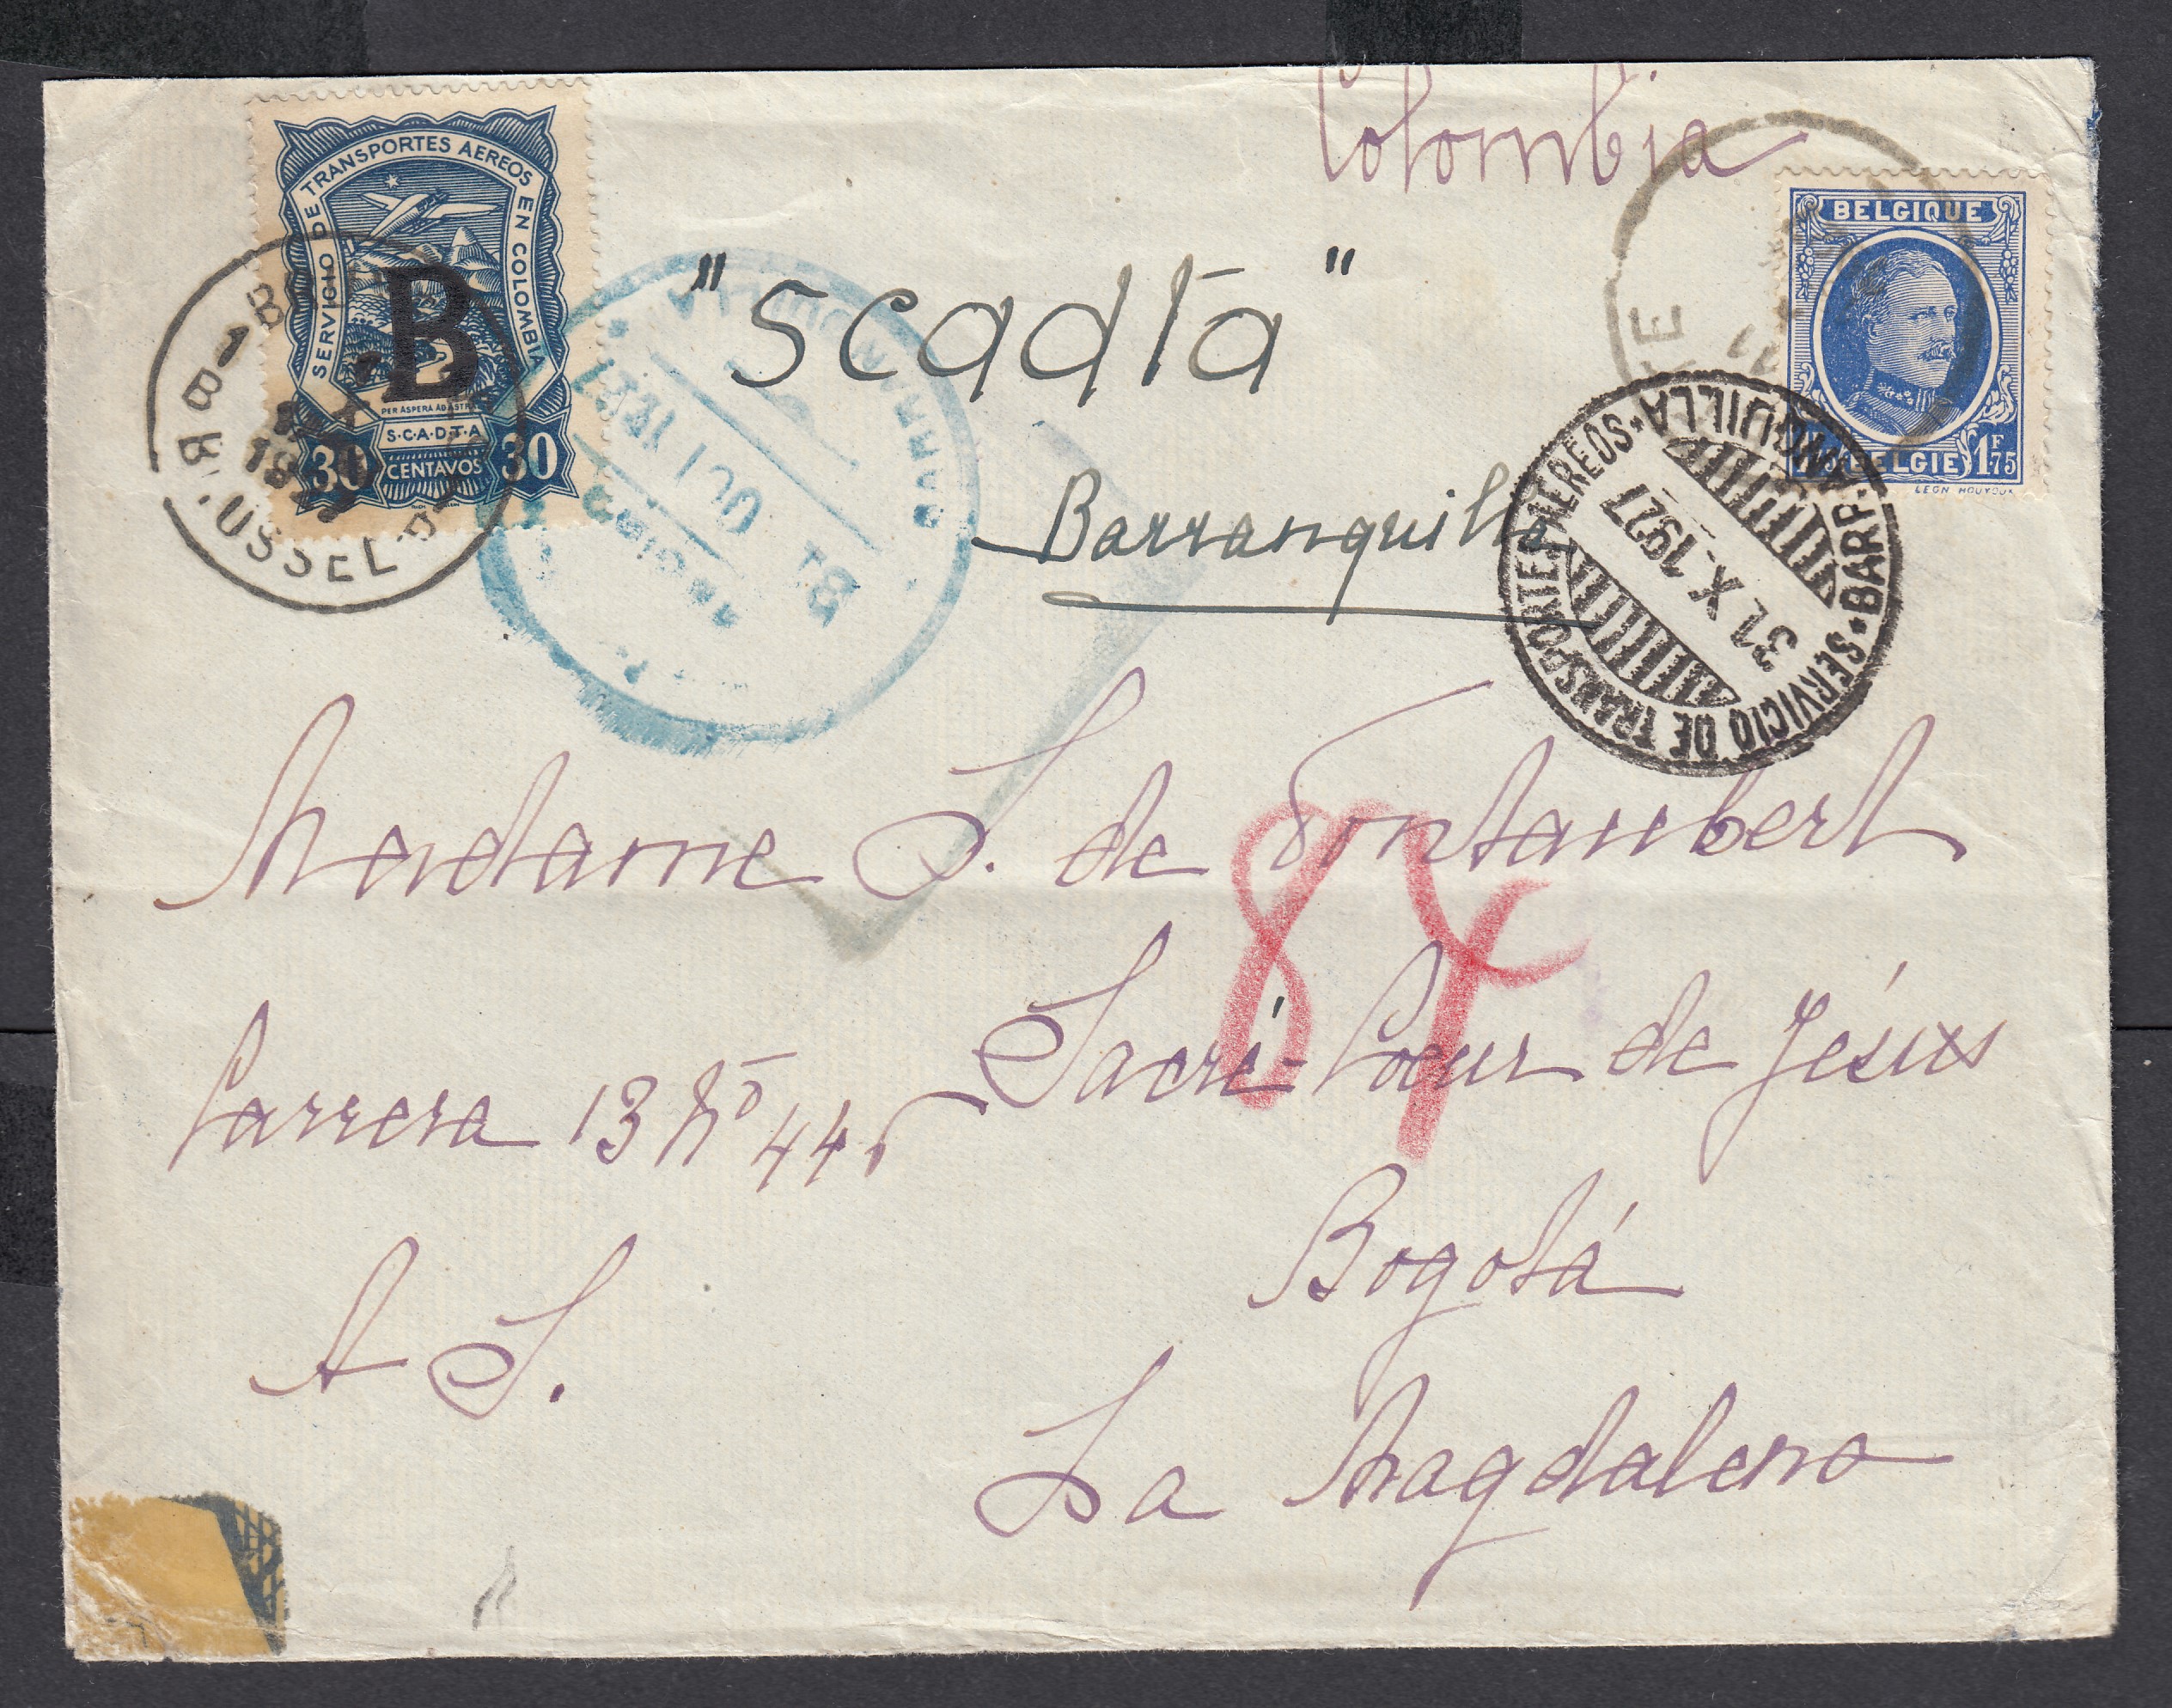 Colombia
SERVICIO DE TRANSPORTES AEREOS EN COLOMBIA
B
PER ASPERA AD ASTRA
S·C·A·D·T·A
30 CENTAVOS 30
BELGIQUE
BELGIE 1F75
LEON HOUYOUX
1 1
BRUSSEL
BARRANQUILLA
31 OCT 1927
"Scadta"
Barranquilla
SERVICIO DE TRANSPORTES AEREOS
BARRANQUILLA
31 X. 1927
Madame S. de Fontaubert
84
Sacré-Coeur de Jésus
Carrera 13 No 446
Bogotá
A S.
La Magdalena